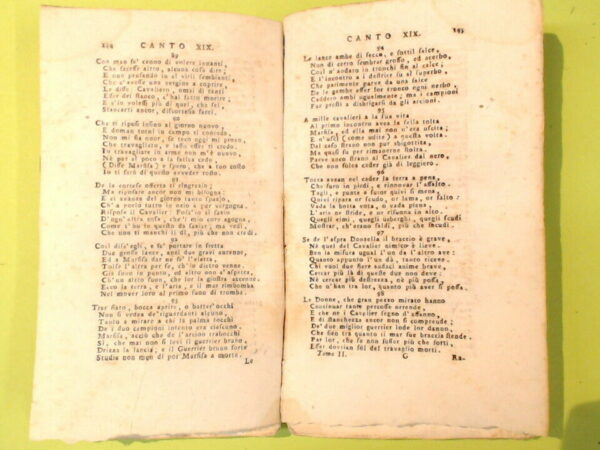 194 CANTO XIX.
89
Con man fe' cenno di volere innanzi,
Che facesse altro, alcuna cosa dire;
E non pensando in sì viril sembianti,
Che s'avesse una vergine a coprire,
Le disse: Cavaliero, omai di tanti
Esser dei stanco, c'hai fatto morire;
E s'io volessi più di quel, che sei,
Stancarti ancor, discortesia farei.
90
Che ti riposi insino al giorno nuovo,
E doman torni in campo ti concedo.
Non mi fia onor, se teco oggi mi provo,
Che travagliato, e lasso esser ti credo.
Il travagliare in arme non m'è nuovo,
Nè per sì poco a la fatica cedo
(Disse Marfisa) e spero, che a tuo costo
Io ti farò di questo avveder tosto.
91
De la cortese offerta ti ringrazio;
Ma riposare ancor non mi bisogna:
E ci avanza del giorno tanto spazio,
Ch'a porlo tutto in ozio è pur vergogna.
Rispose il Cavalier: Foss'io sì sazio
D'ogn'altra cosa, che'l mio core agogna,
Come t'ho in questo da saziar; ma vedi,
Che non ti manchi il dì, più che non credi.
92
Così diss'egli, e fe' portare in fretta
Due grosse lance, anzi due gravi antenne,
Ed a Marfisa dar ne fe' l'eletta,
Tolse l'altra per se, ch'in dietro venne.
Già sono in punto, ed altro non s'aspetta,
Ch'un alto suono, che lor la giostra accenne:
Ecco la terra, e l'aria, e il mar rimbomba
Nel mover loro al primo suon di tromba.
93
Trar fiato, bocca aprire, o batter'occhi
Non si vedea de'riguardanti alcuno,
Tanto a mirare a chi la palma tocchi
De i duo campioni intento era ciascuno.
Marfisa, acciò che de l'arcion trabocchi
Sì, che mai non si levi il Guerrier bruno,
Drizza la lancia; e il Guerrier bruno forte
Studia non men di por Marfisa a morte.
Le
CANTO XIX. 195
94
Le lance ambe di secco, e sottil salce,
Non di cerro sembrar grosso, ed acerbo,
Così n'andaro in tronchi fin al calce;
E l'incontro a i destrier fu sì superbo,
Che parimente parve da una falce
De le gambe esser lor tronco ogni nerbo,
Caddero ambi ugualmente; ma i campioni
Fur presti a disbrigarsi da gli arcioni.
95
A mille cavalieri a la sua vita
Al primo incontro avea la sella tolta
Marfisa, ed ella mai non n'era uscita;
E n'uscì (come udite) a questa volta.
Del caso strano non pur sbigottita,
Ma quasi fu per rimanerne stolta.
Parve anco strano al Cavalier dal nero,
Che non solea cader già di leggiero.
96
Tocca avean nel cader la terra a pena,
Che furo in piedi, e rinnovar l'assalto.
Tagli, e punte a furor quivi si mena,
Quivi ripara or scudo, or lama, or salto:
Vada la botta vota, o vada piena,
L'aria ne stride, e ne risuona in alto.
Quegli elmi, quegli usberghi, quegli scudi
Mostrar, ch'erano saldi, più che incudi.
97
Se de l'aspra Donzella il braccio è grave,
Nè quel del Cavalier nimico è lieve.
Ben la misura ugual l'un da l'altro ave:
Quanto appunto l'un dà, tanto riceve.
Chi vuol due fiere audaci anime brave,
Cercar più là di queste due non deve:
Nè cercar più destrezza, nè più possa,
Che n'han tra lor, quanto più aver si possa.
98
Le Donne, che gran pezzo mirato hanno
Continuar tante percosse orrende,
E che ne i Cavalier segno d'affanno,
E di stanchezza ancor non si comprende;
De' duo miglior guerrier lode lor danno,
Che sien tra quanto il mar sue braccia stende.
Par lor, che se non fosser più che forti,
Esser dovrian sol del travaglio morti.
Tomo II. G Ra-